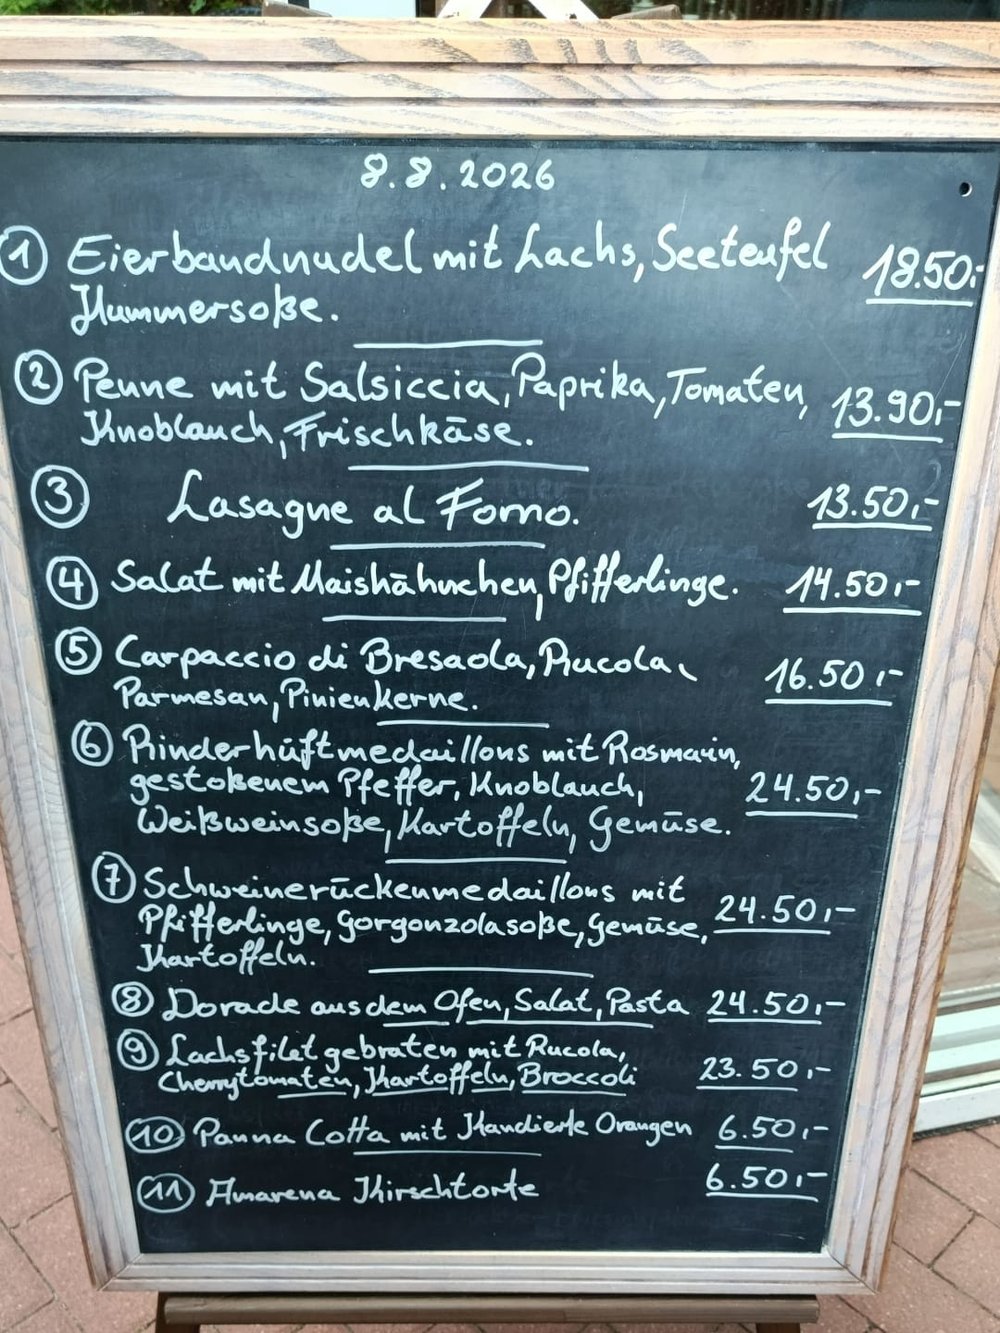 8.8.2026
1 Eierbandnudel mit Lachs, Seeteufel 18.50,-
Hummersoße.
2 Penne mit Salsiccia, Paprika, Tomaten, 13.90,-
Knoblauch, Frischkäse.
3 Lasagne al Forno. 13.50,-
4 Salat mit Maishähnchen, Pfifferlinge. 14.50,-
5 Carpaccio di Bresaola, Rucola, 16.50,-
Parmesan, Pinienkerne.
6 Rinderhüftmedaillons mit Rosmarin,
gestoßenem Pfeffer, Knoblauch, 24.50,-
Weißweinsoße, Kartoffeln, Gemüse.
7 Schweinerückenmedaillons mit
Pfifferlinge, Gorgonzolasoße, Gemüse, 24.50,-
Kartoffeln.
8 Dorade aus dem Ofen, Salat, Pasta 24.50,-
9 Lachsfilet gebraten mit Rucola,
Cherrytomaten, Kartoffeln, Broccoli 23.50,-
10 Panna Cotta mit Kandierte Orangen 6.50,-
11 Amarena Kirschtorte 6.50,-